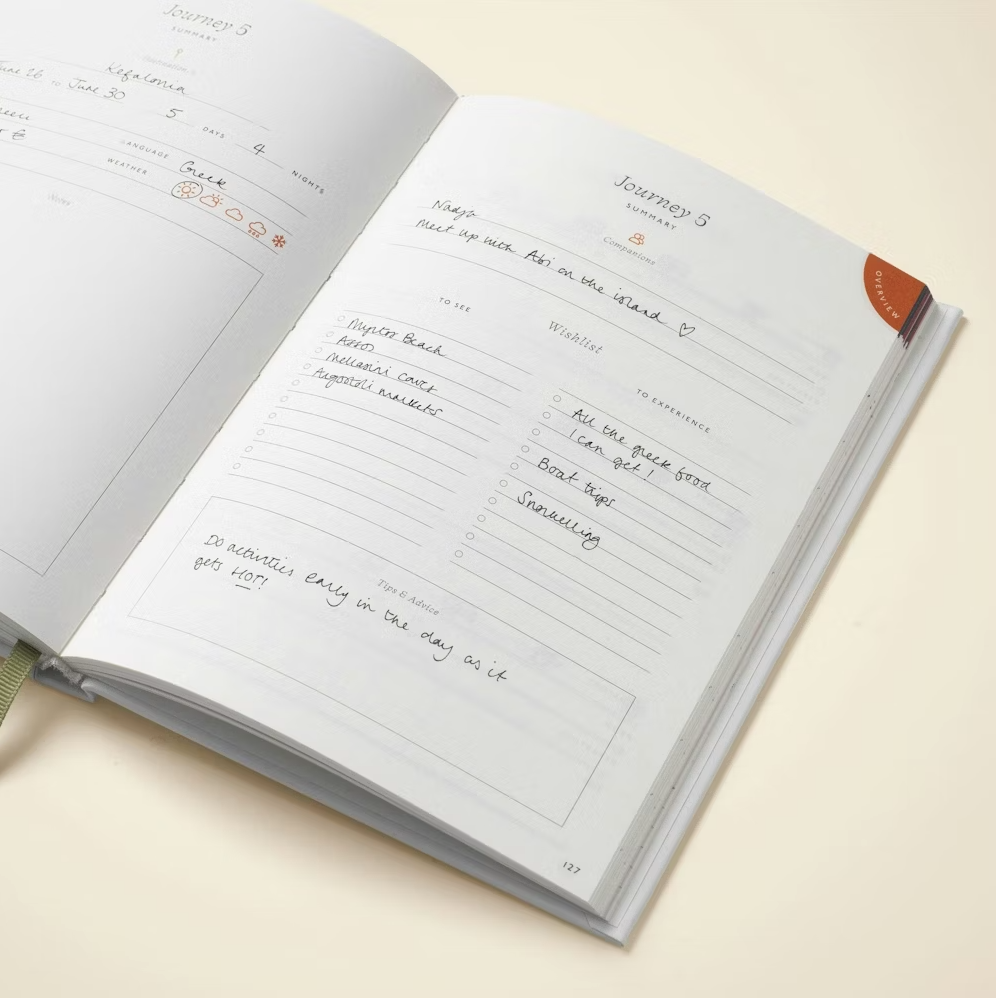 Journey 5
SUMMARY
Kefalonia
June 26 TO June 30
5 DAYS 4 NIGHTS
LANGUAGE Greek
WEATHER
Notes
Journey 5
SUMMARY
Companions
Nadja
Meet up with Abi on the island ♡
Wishlist
TO SEE
Myrtos Beach
Assos
Mellasini caves
Argostoli markets
TO EXPERIENCE
All the greek food
I can get!
Boat trips
Snorkelling
Tips & Advice
Do activities early in the day as it
gets HOT!
127
OVERVIEW